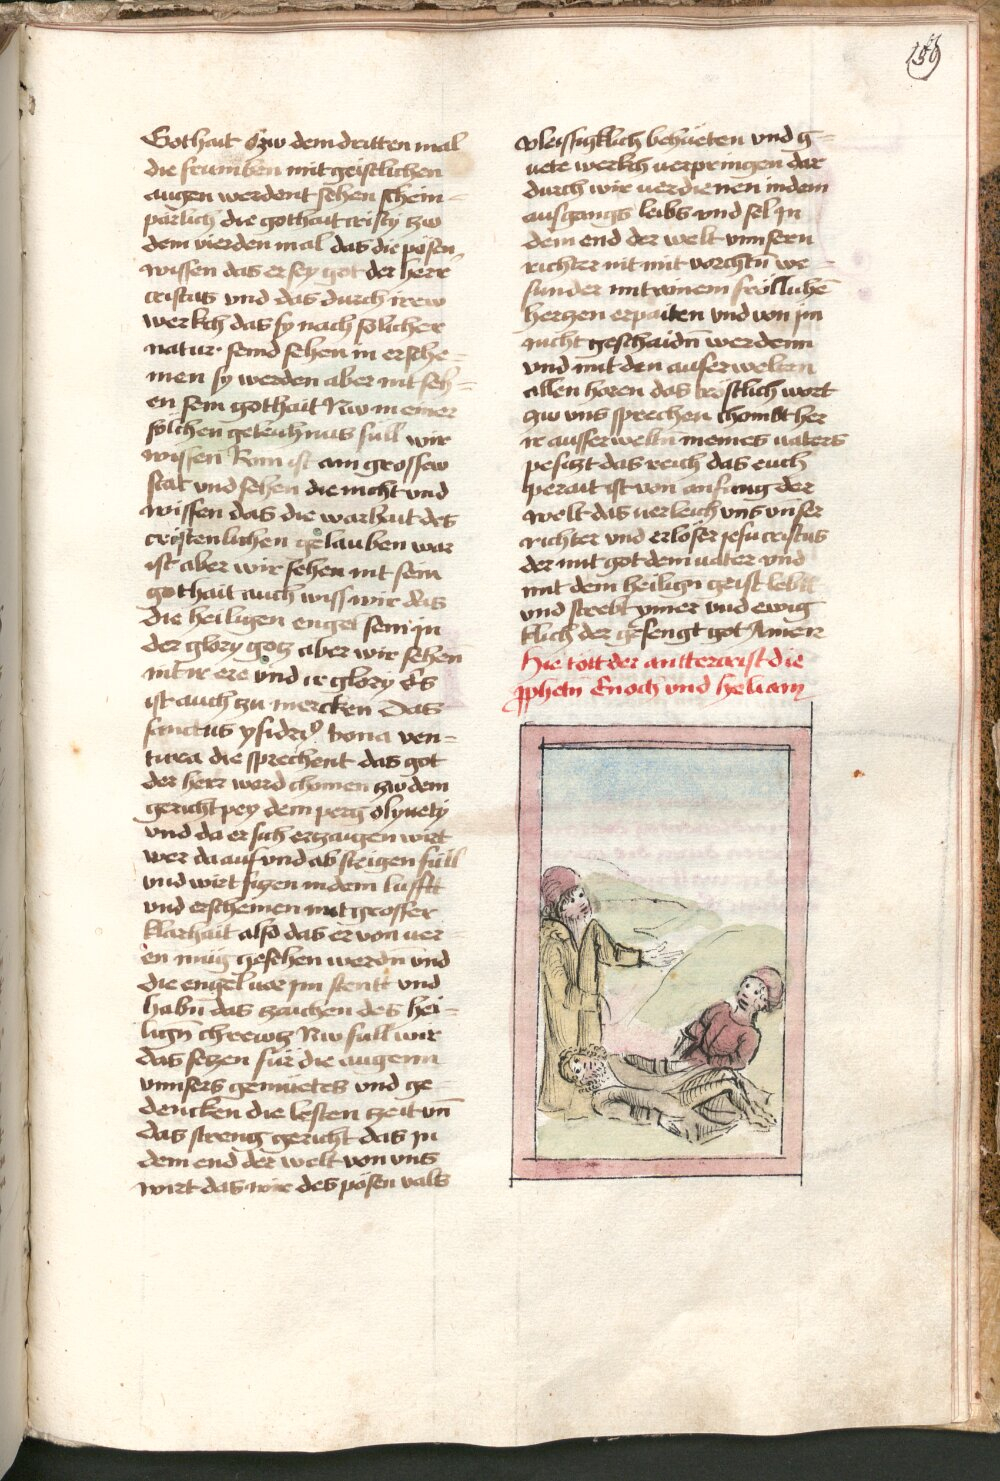 159
Gothait Czw dem dritten mal
die frumben mit geistlichen
augen werdent sehen schein-
parlich die gothait cristy czw
dem vierden mal das die pösen
wissen das er sey got der herr
cristus und das durch irew
werkch das sy nach sölicher
natur seind sehen in ersche-
inen sy werden aber nit seh-
en sein gothait Nw in einer
sölchen geleuchnus sull wir
wissen Rom ist ain grossew
stat und sehen die nicht und
wissen das die warhait des
cristenlichen gelauben war
ist aber wir sehen nit sein
gothait auch wiss wir das
die heiligen engel sein in
der glory gotz aber wir sehen
nit ir ere und ir glory Es
ist auch tzu mercken Das
sanctus ysidrꝰ bona ven-
tura die sprechent das got
der herr werd chomen tzw dem
gericht pey dem perg olyuety
und da er sich ertzaigen wirt
wer da auf und ab steigen sull
und wirt sitzen in dem lufft
und erscheinen mit grosser
klarhait also das er von uer-
en mug gesehen werdn und
die engel vor im stent und
habn das tzaichen des hei-
lign chrewtz Nw sull wir
das setzen für die augenn
unnsers gemuetes und ge-
dencken die lesten tzeit un̄
das streng gericht das in
dem end der welt von uns
wirt das wir des pösen vals
vleissigklich behüeten und g-
uete werkch uerpringen dar
durch wir uerdienen in dem
ausgangs leibs und sel In
dem end der welt unnsern
richter nit mit vorchtn̄ we-
sunder mit ainem frölichē
hertzen erpaiten und von im
nicht geschaidn̄ werdenn
und mit den auserwelten
allen horen das tröstlich wort
zw uns sprechen chombt her
ir ausserweltn meines uaters
pesitzt das reich das euch
perait ist von anfang der
welt das uerleich uns unser
richter und erlöser jesu cristus
der mit got dem uater und
mit dem heilign geist lebtt
und strebt ymer und ewig
klich der gesengt got Amen
Hie tött der antterchrist die
ꝓphetn̄ Enoch und heliam